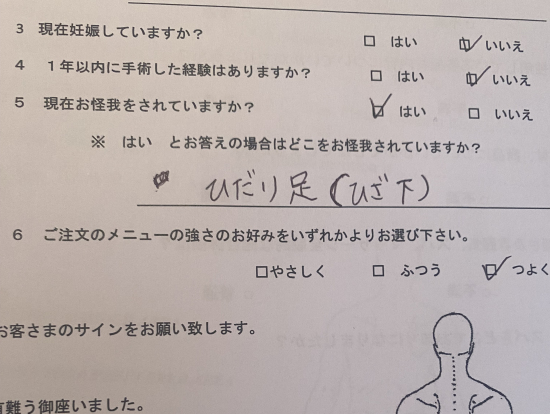 3 現在妊娠していますか？ □ はい ☑ いいえ
4 １年以内に手術した経験はありますか？ □ はい ☑ いいえ
5 現在お怪我をされていますか？ ☑ はい □ いいえ
※ はい とお答えの場合はどこをお怪我されていますか？
ひだり足(ひざ下)
6 ご注文のメニューの強さのお好みをいずれかよりお選び下さい。
□やさしく □ ふつう ☑ つよく
お客さまのサインをお願い致します。
有難う御座いました。